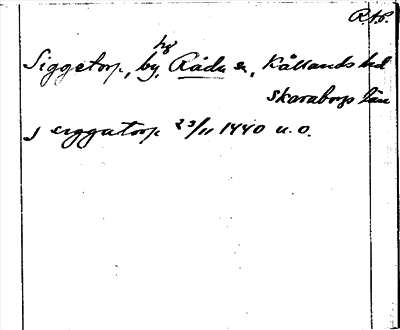 R.A.P.
hg
Siggetorp, by, Råda sn, Kållands hd
Skaraborgs län
J siggatorp 23/11 1440 u.o.